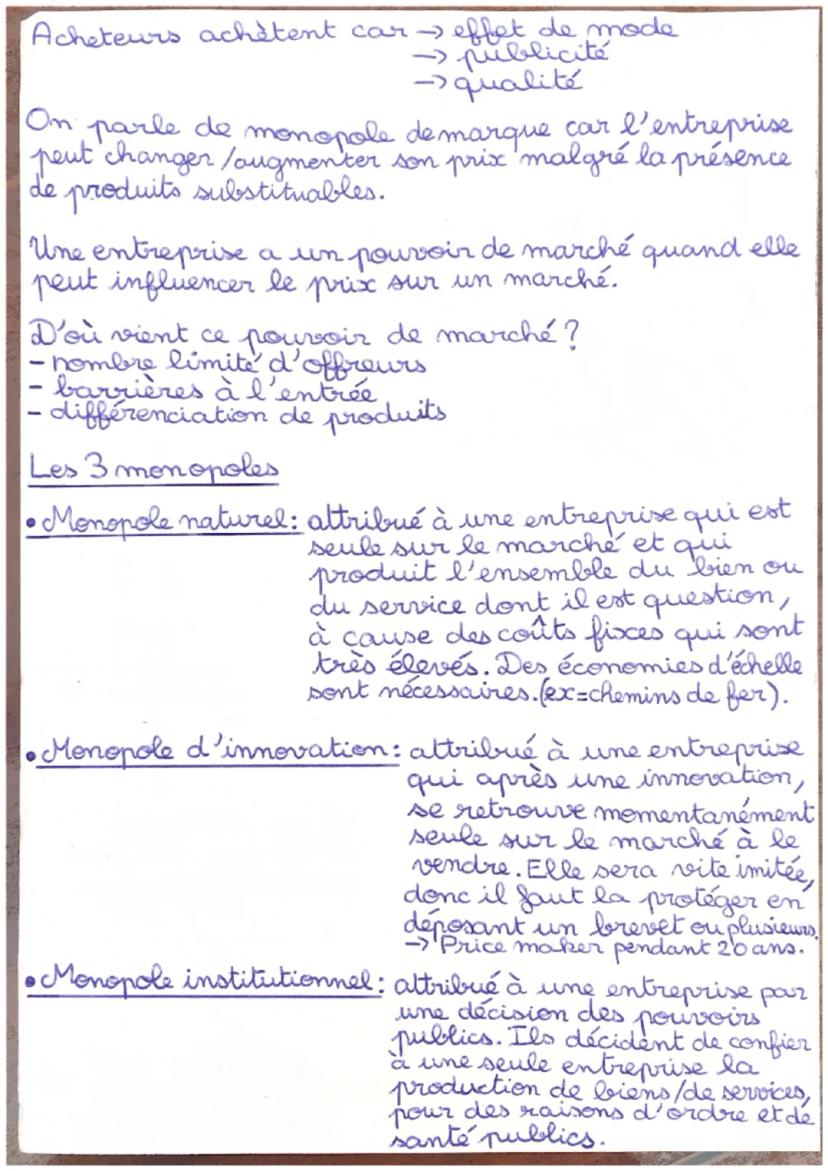 Acheteurs achètent car → effet de mode
→ publicité
→ qualité
On parle de monopole de marque car l'entreprise
peut changer/augmenter son prix malgré la présence
de produits substituables.
Une entreprise a un pouvoir de marché quand elle
peut influencer le prix sur un marché.
D'où vient ce pouvoir de marché ?
- nombre limité d'offreurs
- barrières à l'entrée
- différenciation de produits
Les 3 monopoles
• Monopole naturel : attribué à une entreprise qui est
seule sur le marché et qui
produit l'ensemble du bien ou
du service dont il est question,
à cause des coûts fixes qui sont
très élevés. Des économies d'échelle
sont nécessaires.(ex=chemins de fer).
• Monopole d'innovation : attribué à une entreprise
qui après une innovation,
se retrouve momentanément
seule sur le marché à le
vendre. Elle sera vite imitée,
donc il faut la protéger en
déposant un brevet ou plusieurs.
→ Price maker pendant 20 ans.
• Monopole institutionnel : attribué à une entreprise par
une décision des pouvoirs
publics. Ils décident de confier
à une seule entreprise la
production de biens/de services,
pour des raisons d'ordre et de
santé publics.